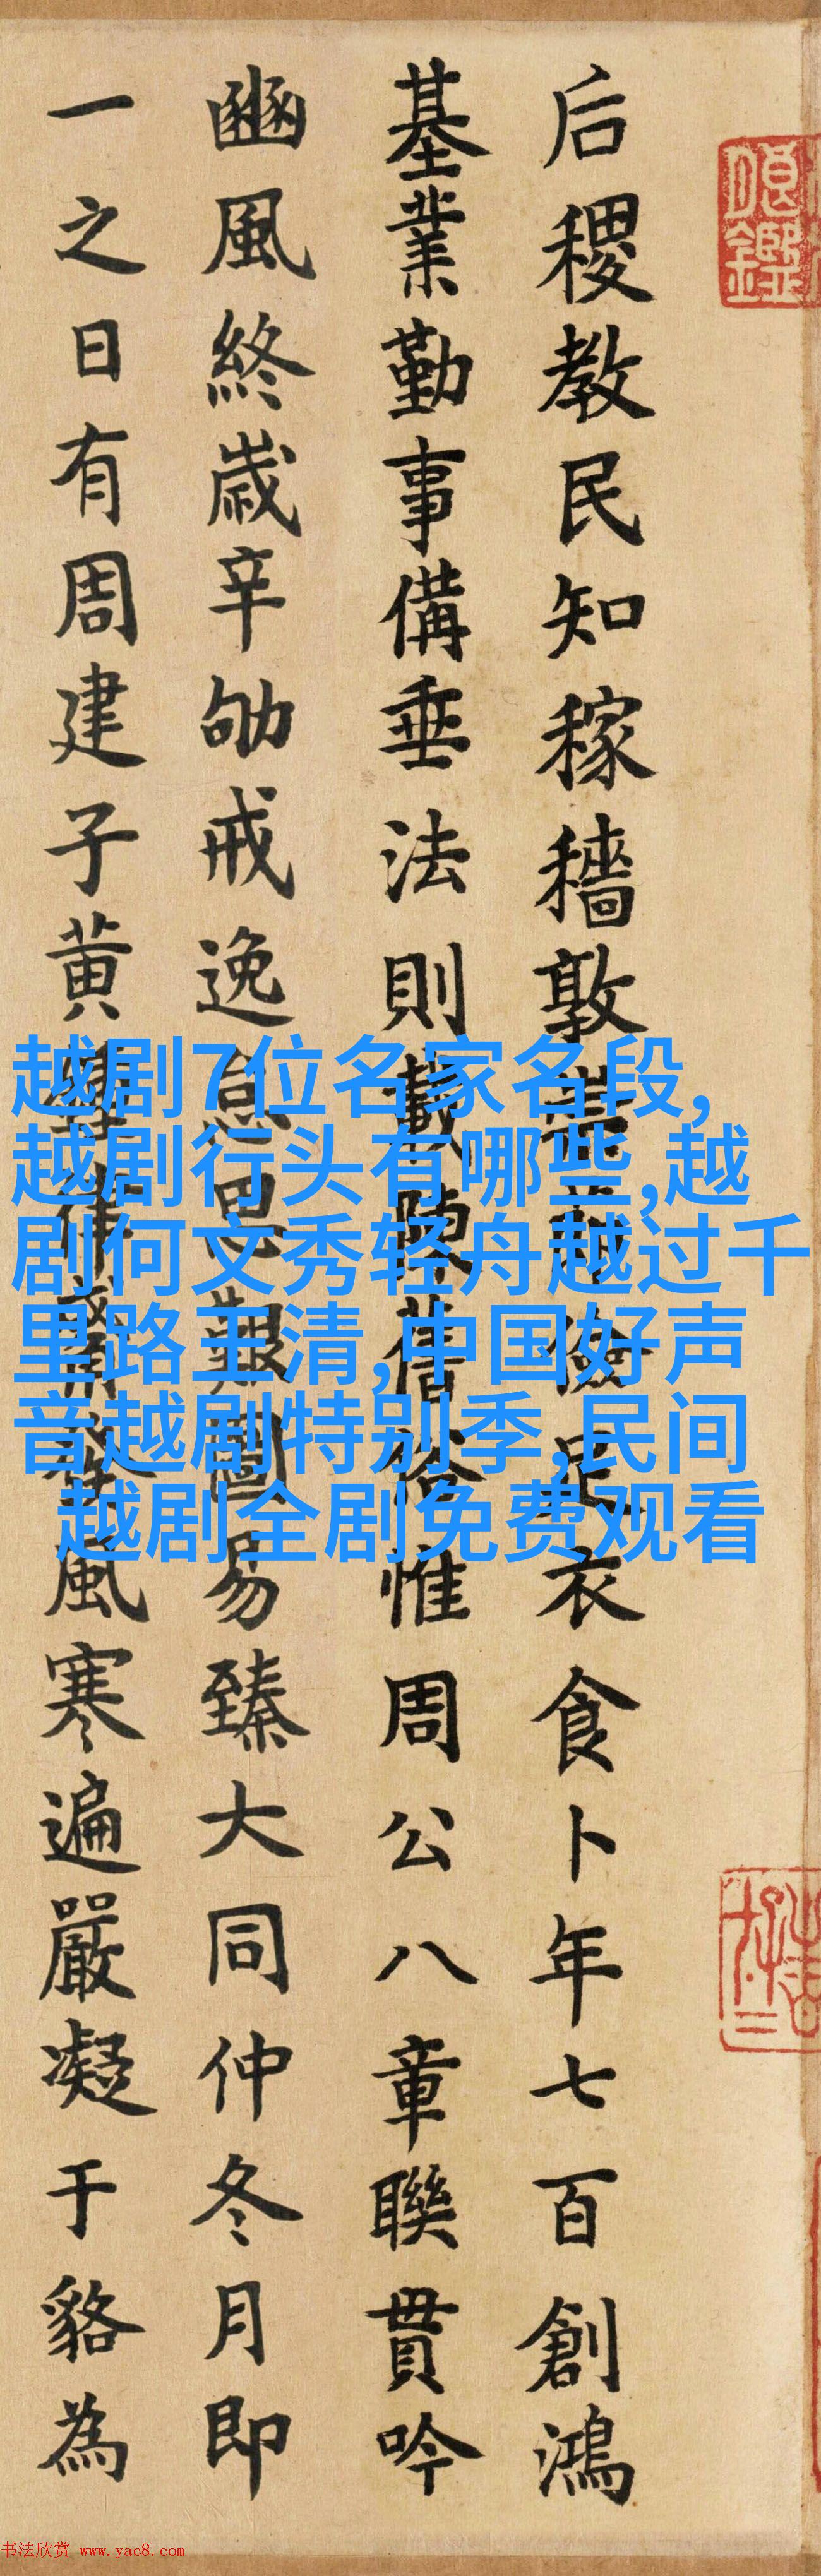 后稷教民知稼穡敦
儉足衣食卜年七百創鴻
基業勤事備垂法則載陳舊
惟周公八章聯貫吟
豳風終歲辛劬戒逸
思艱圖易臻大同仲冬月即
一之日有周建子黃
風寒遍嚴凝于貉為
越剧7位名家名段,
越剧行头有哪些,越
剧何文秀轻舟越过千
里路王清,中国好声
音越剧特别季,民间
越剧全剧免费观看
书法欣赏 www.yac8.com